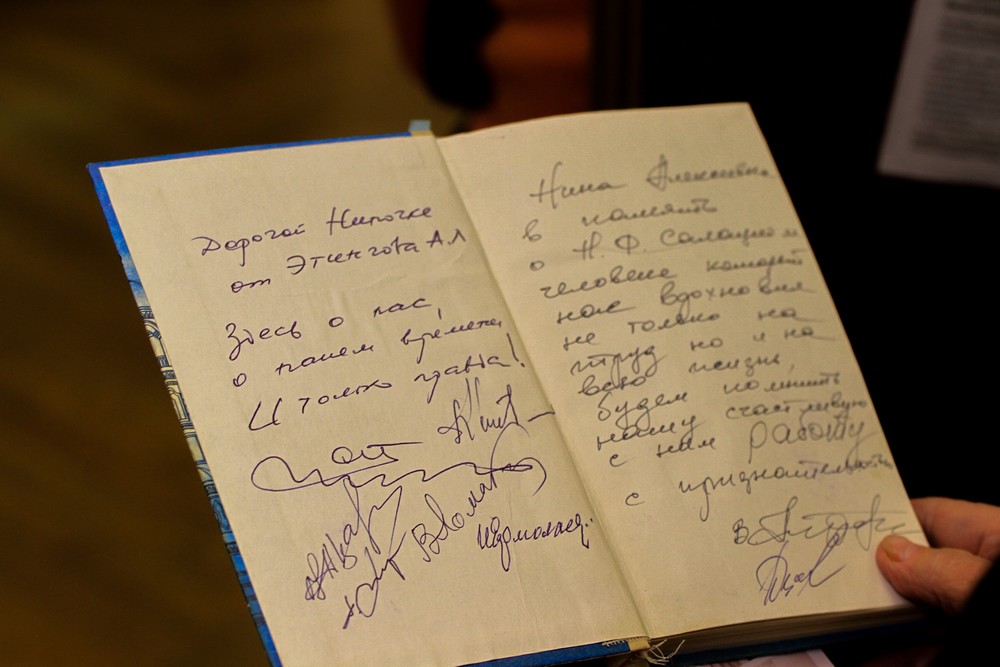 Дорогой Ниночке
от Этингова А.Л
Здесь о нас,
о нашем времени
И только правда!
Нина Алексеевна
в память
о Н.Ф. Солоцком
человеке который
нас вдохновил
не только на
труд но и на
всю жизнь,
будем помнить
нашу счастливую
с ним работу
с признательностью